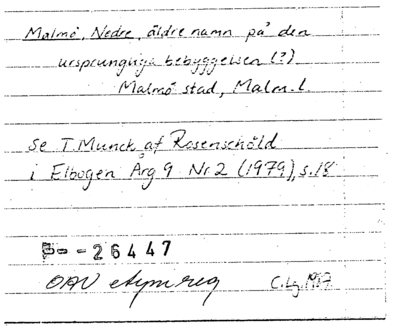 Malmö, Nedre, äldre namn på den
ursprungliga bebyggelsen (?)
Malmö stad, Malm.l.
se T. Munck af Rosenschöld
i Elbogen Årg 9 Nr 2 (1979), s. 18
26447
OAU etym reg
C. Lg.